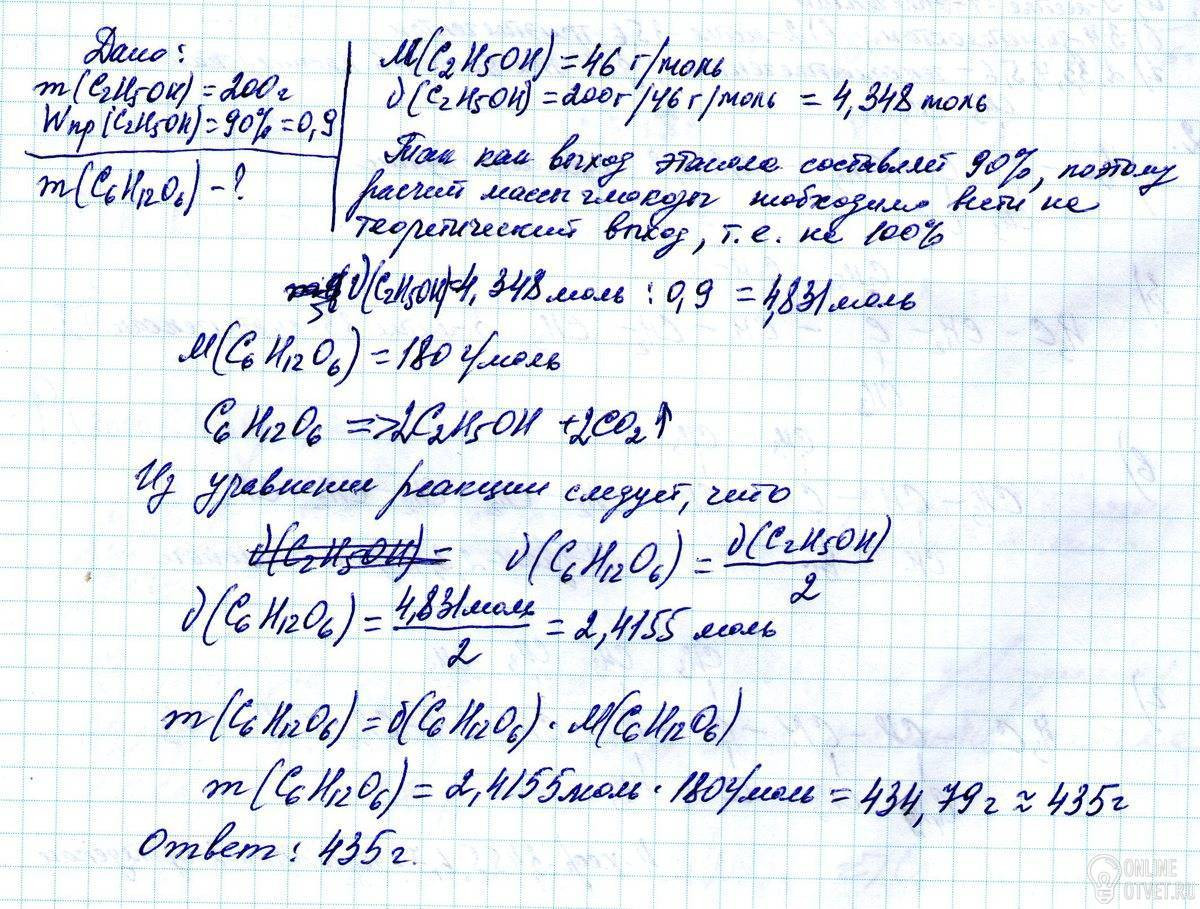 Дано:
m(C2H5OH) = 200г
Wпр(C2H5OH) = 90% = 0,9
m(C6H12O6) - ?
M(C2H5OH) = 46 г/моль
ϑ(C2H5OH) = 200г/46 г/моль = 4,348 моль
Так как выход этанола составляет 90%, поэтому
расчет массы глюкозы необходимо вести на
теоретический выход, т.е. на 100%
ϑ(C2H5OH) = 4,348 моль : 0,9 = 4,831 моль
M(C6H12O6) = 180 г/моль
C6H12O6 => 2C2H5OH + 2CO2↑
Из уравнения реакции следует, что
ϑ(C2H5OH) = ϑ(C6H12O6) = ϑ(C2H5OH)/2
ϑ(C6H12O6) = 4,831 моль/2 = 2,4155 моль
m(C6H12O6) = ϑ(C6H12O6) · M(C6H12O6)
m(C6H12O6) = 2,4155 моль · 180 г/моль = 434,79 г ≈ 435 г
Ответ: 435 г.
ONLINE
OTVET.RU